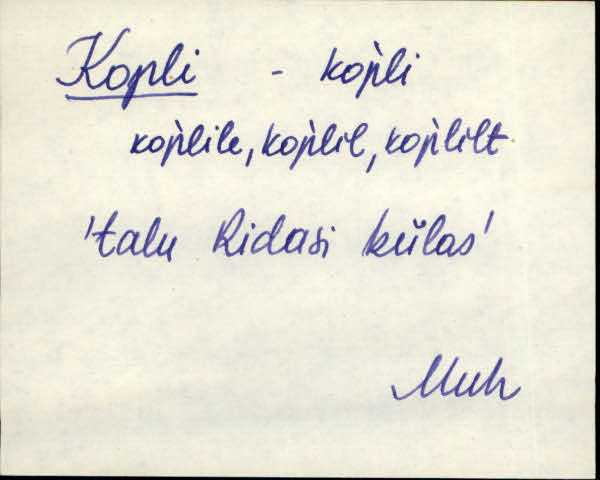 Kopli - kop̀li
kop̀lile, kop̀lil, kop̀lilt
'talu Ridasi külas'
Muh